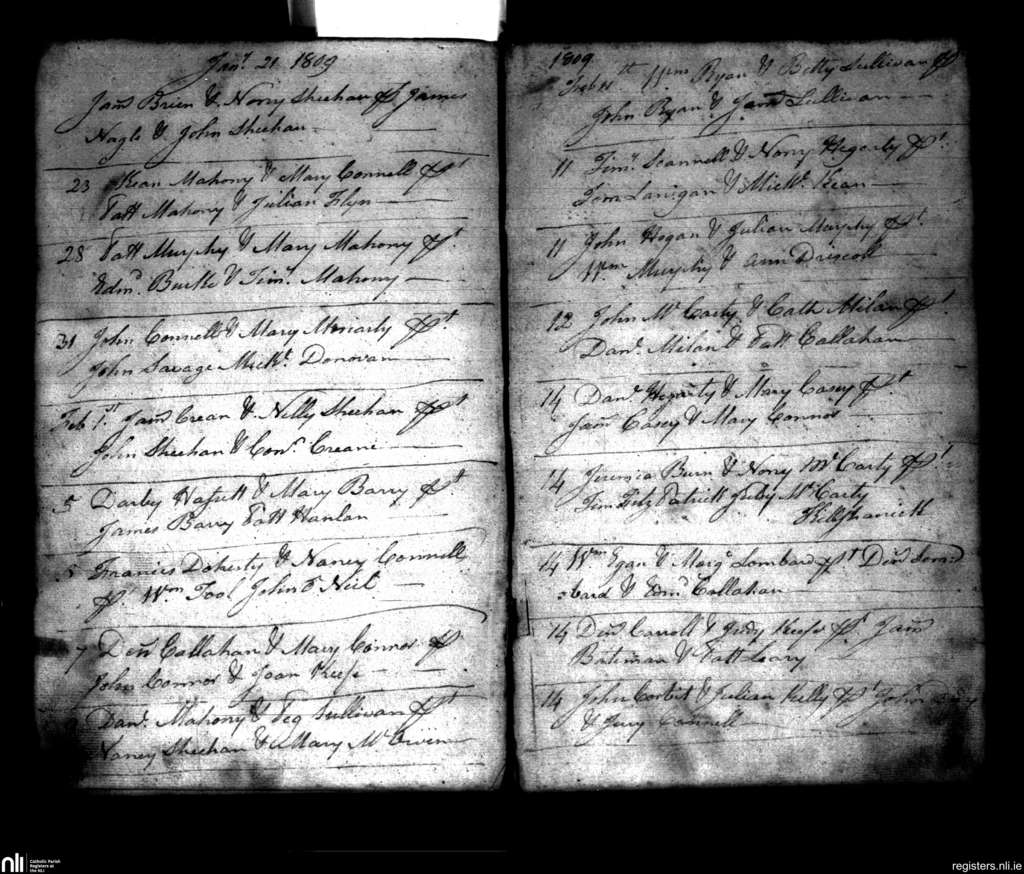 Jany. 21 1809
Jams Brien & Norry Sheehan pt James
Nagle & John Sheehan
23 Kean Mahony & Mary Connell pt
Patt Mahony & Julian Flyn
28 Patt Murphy & Mary Mahony pt
Edmd. Burke & Timy. Mahony
31 John Connell & Mary Moriarty pt
John Savage Michl. Donovan
Feb 1st. Jams Crean & Nelly Sheehan pt
John Sheehan & Corns. Creane
5 Darby Hassett & Mary Barry pt
James Barry Patt Hanlan
5 Francis Doherty & Nancy Connell
pt Wm Tool John O Neil
7 Den Callahan & Mary Connor pt
John Connor & Joan Keefe
Danl. Mahony & Peg Sullivan pt
Nancy Sheehan & Mary Mc
1809
Feb 11th Wm Ryan & Betty Sullivan pt
John Ryan & Jams Sullivan
11 Timy. Scannell & Norry Hegarty pt
Tom Lanigan & Michl. Kean
11 John Hogan & Julian Murphy pt
Wm Murphy & Ann Driscoll
12 John Mc Carty & Cath Milan pt
Danl. Milan & Patt Callahan
14 Danl. Hegarty & Mary Casey pt
Jams Casey & Mary Connor
14 Jeremia Burn & Norry Mc Carty pt
Tim Fitz Patrick Judy Mc Carty
14 Wm Egan & Marg Lombard pt Den Lom
bard & Edmd Callahan
14 Den Carroll & Judy Keefe pt Jams
Bateman & Patt Leary
14 John Corbet & Julian Kelly pt John
& Jury Connell
nli
Catholic Parish
Registers at
the NLI
registers.nli.ie